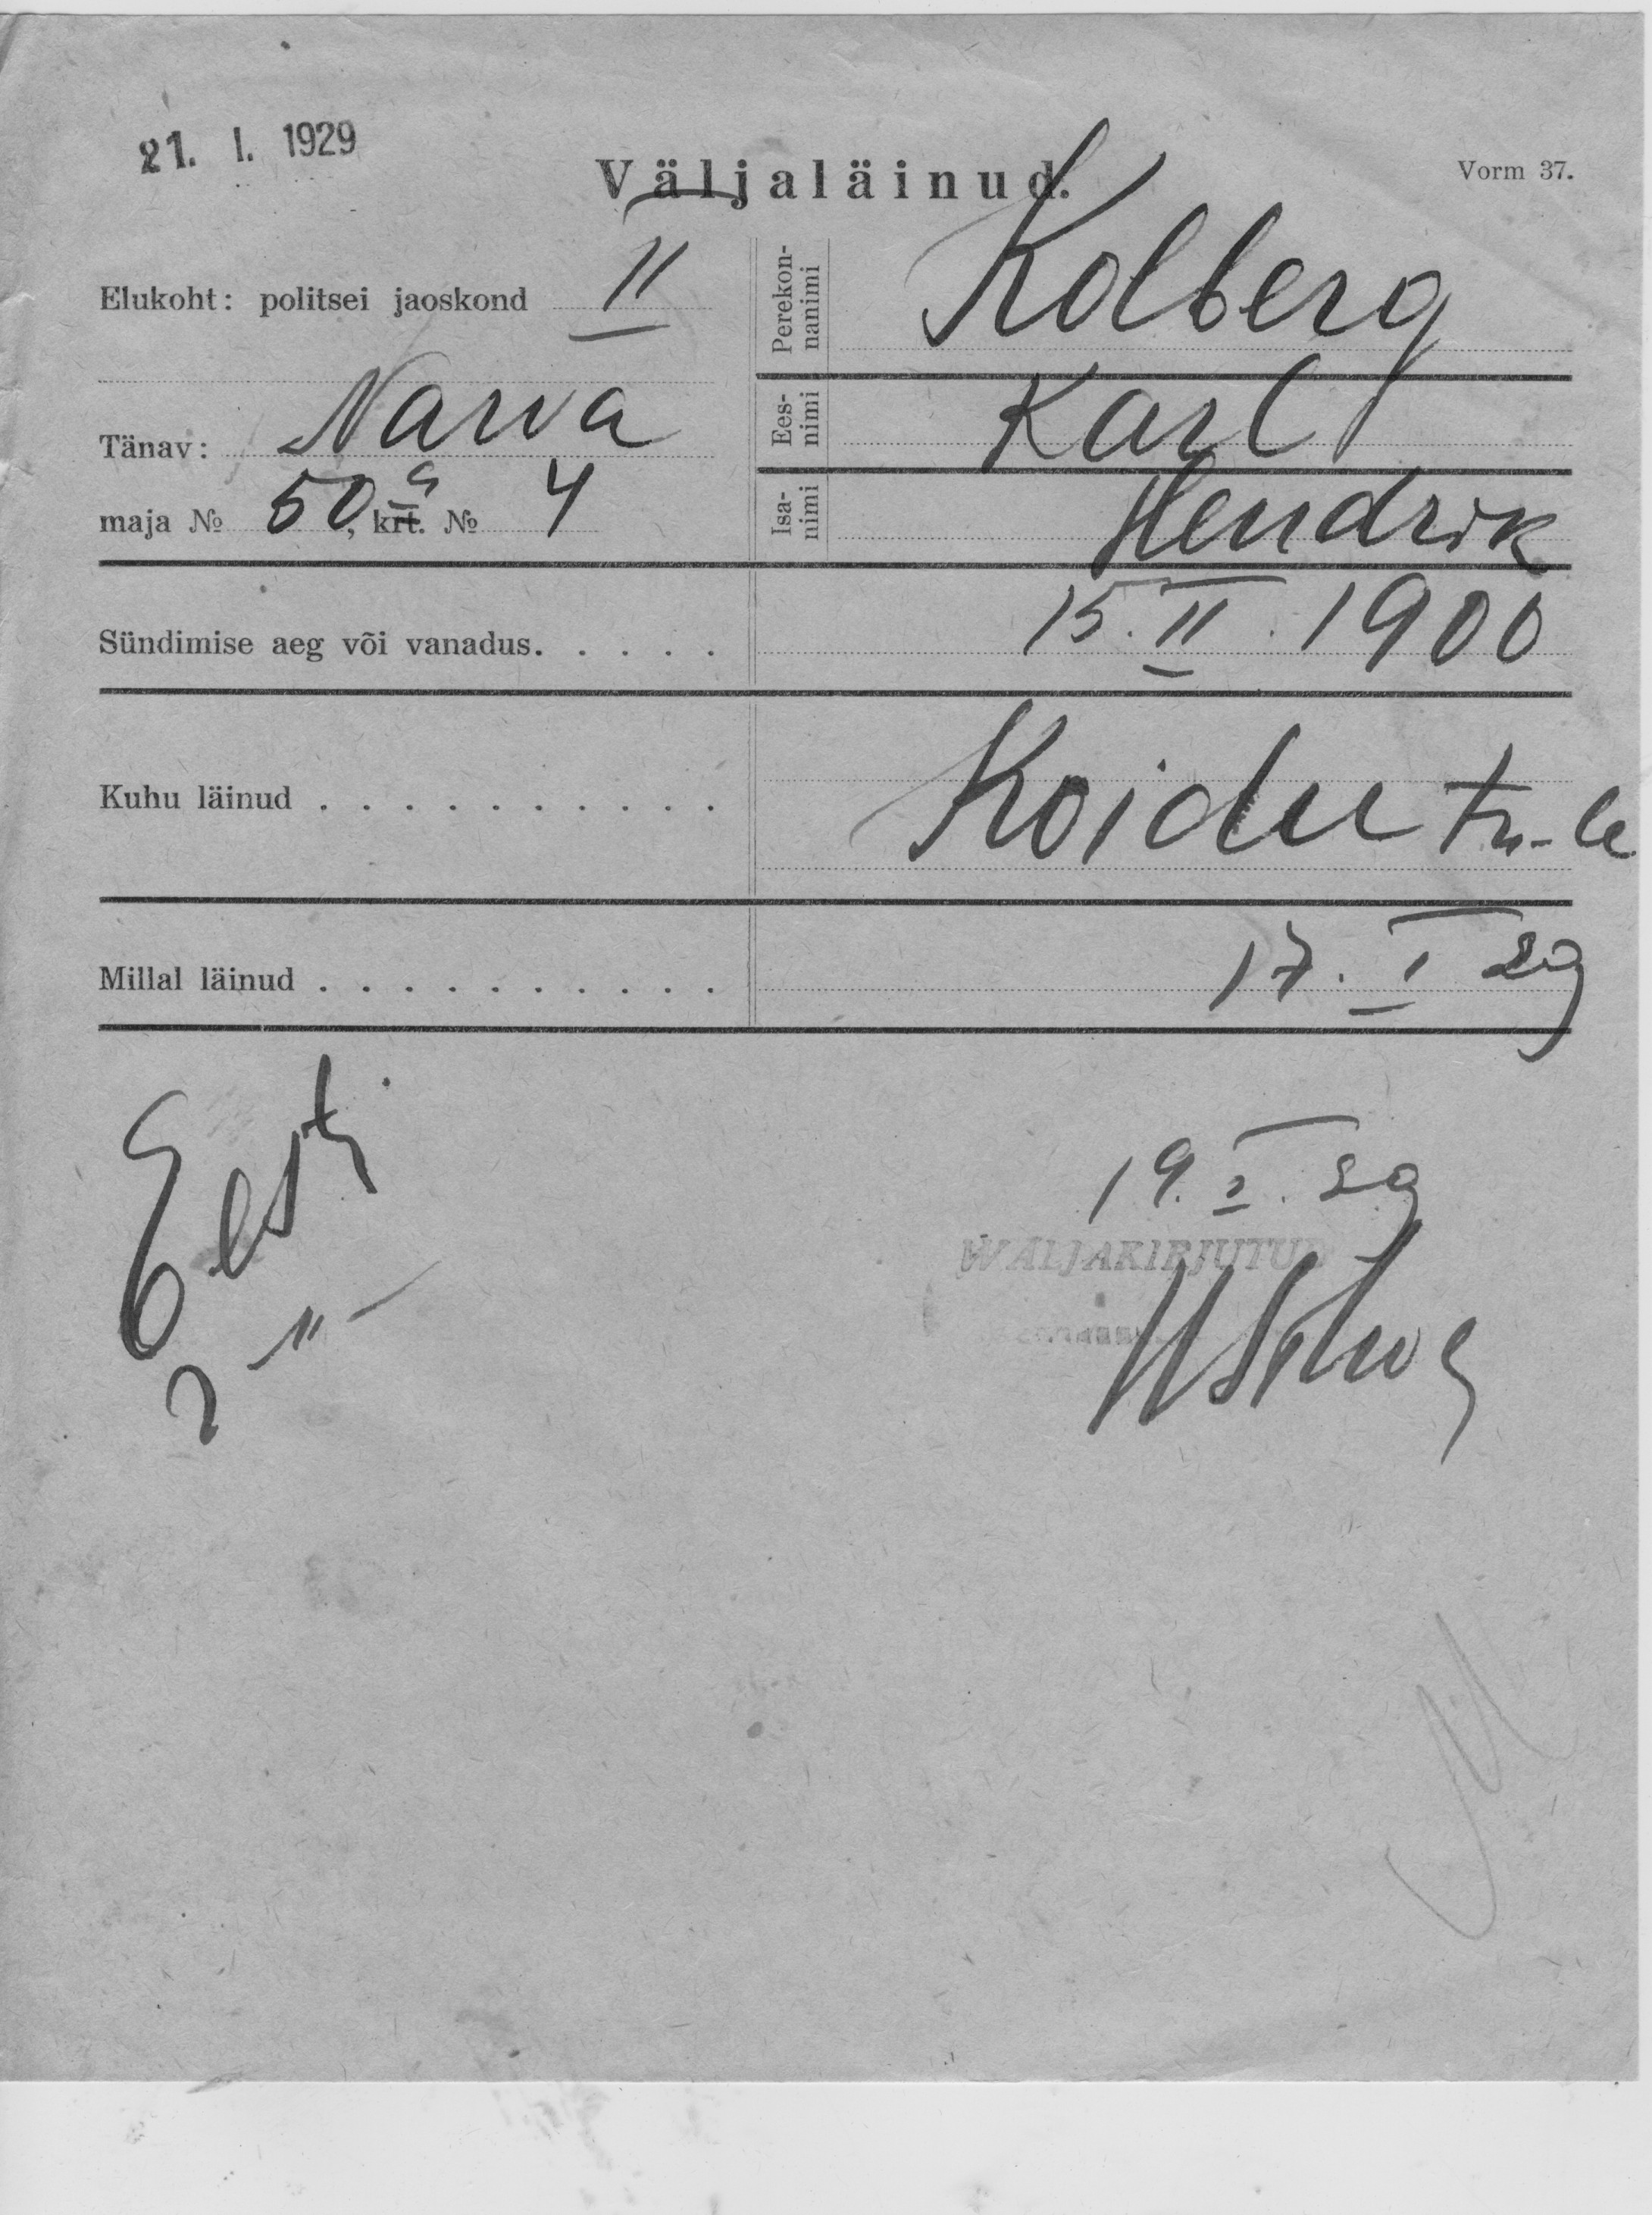 21. I. 1929
Väljaläinud.
Vorm 37.
Elukoht: politsei jaoskond II
Perekon-
nanimi
Kolberg
Tänav: Narva
Ees-
nimi
Karl
maja № 50a, krt. № 4
Isa-
nimi
Hendrik
Sündimise aeg või vanadus. . . . . 15. II. 1900
Kuhu läinud . . . . . . . . . . Koidu tn-le
Millal läinud . . . . . . . . . . 17. I 29
Eesti
19. I. 29
WÄLJAKIRJUTUD